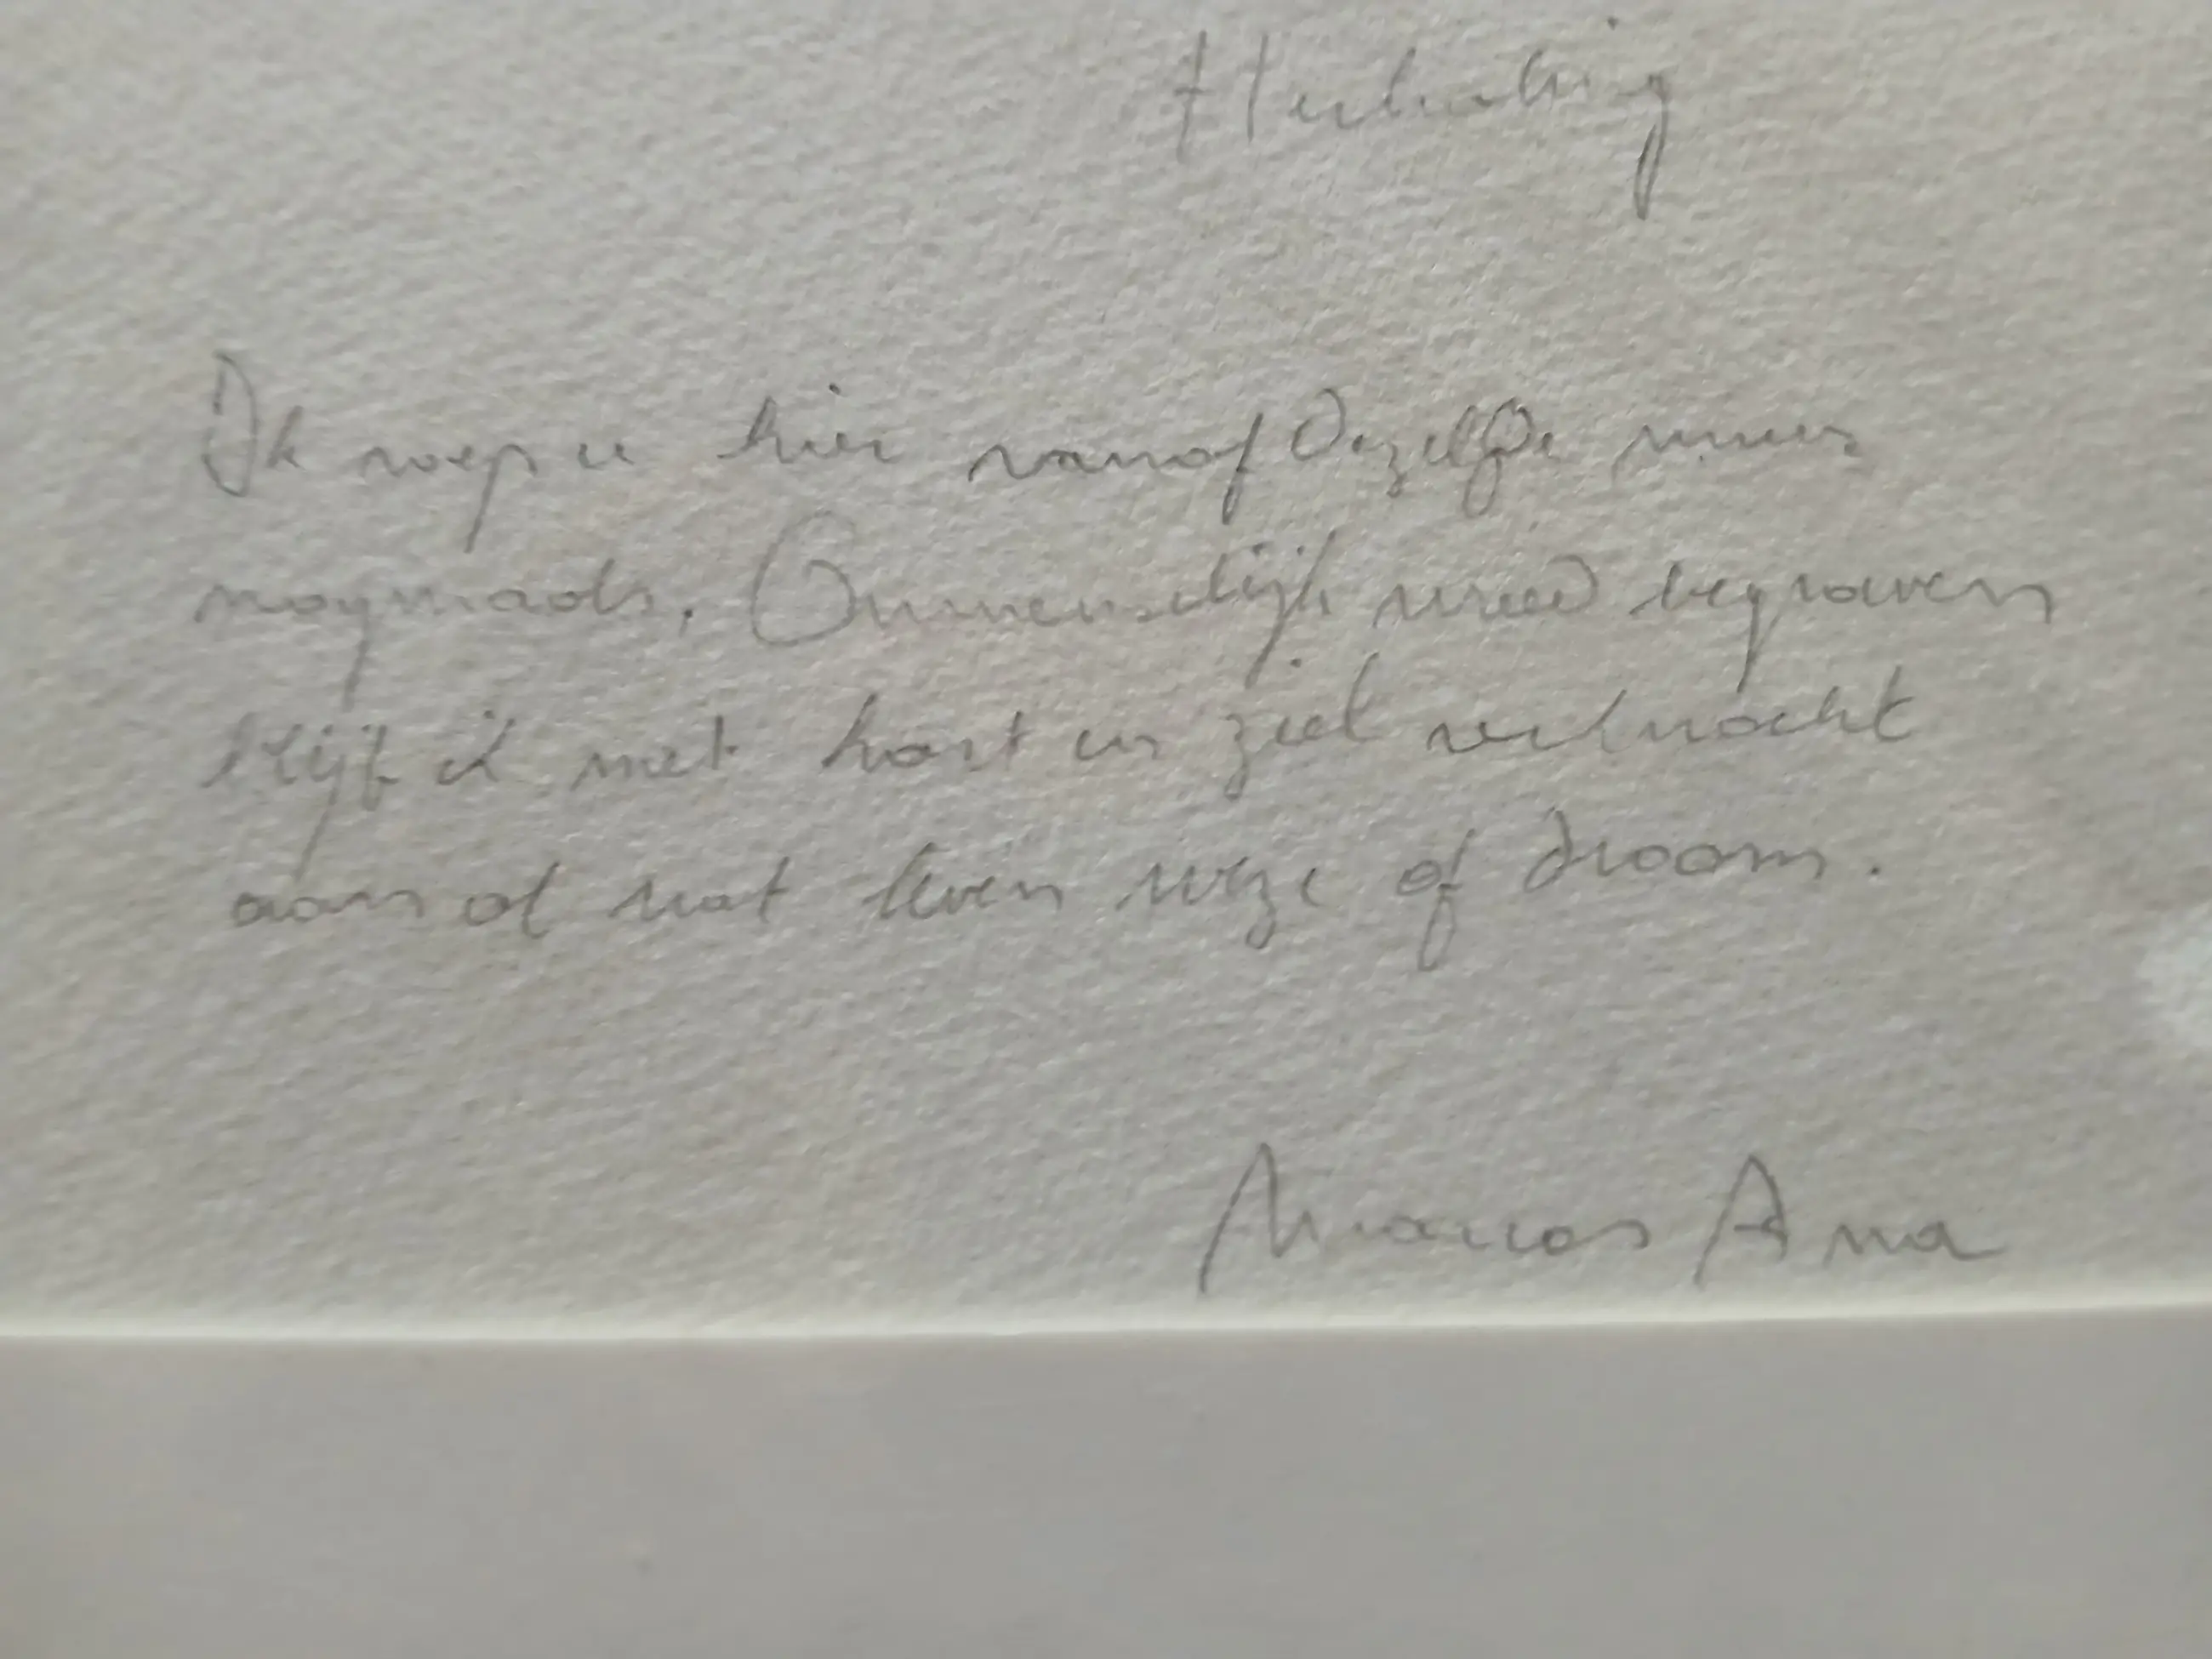 Herhaling
Ik roep u hier vanaf dezelfde muur
nogmaals. Onmenselijk wreed begraven
blijf ik met hart en ziel verknocht
aan al wat leven weze of droom.
Marcos Ana